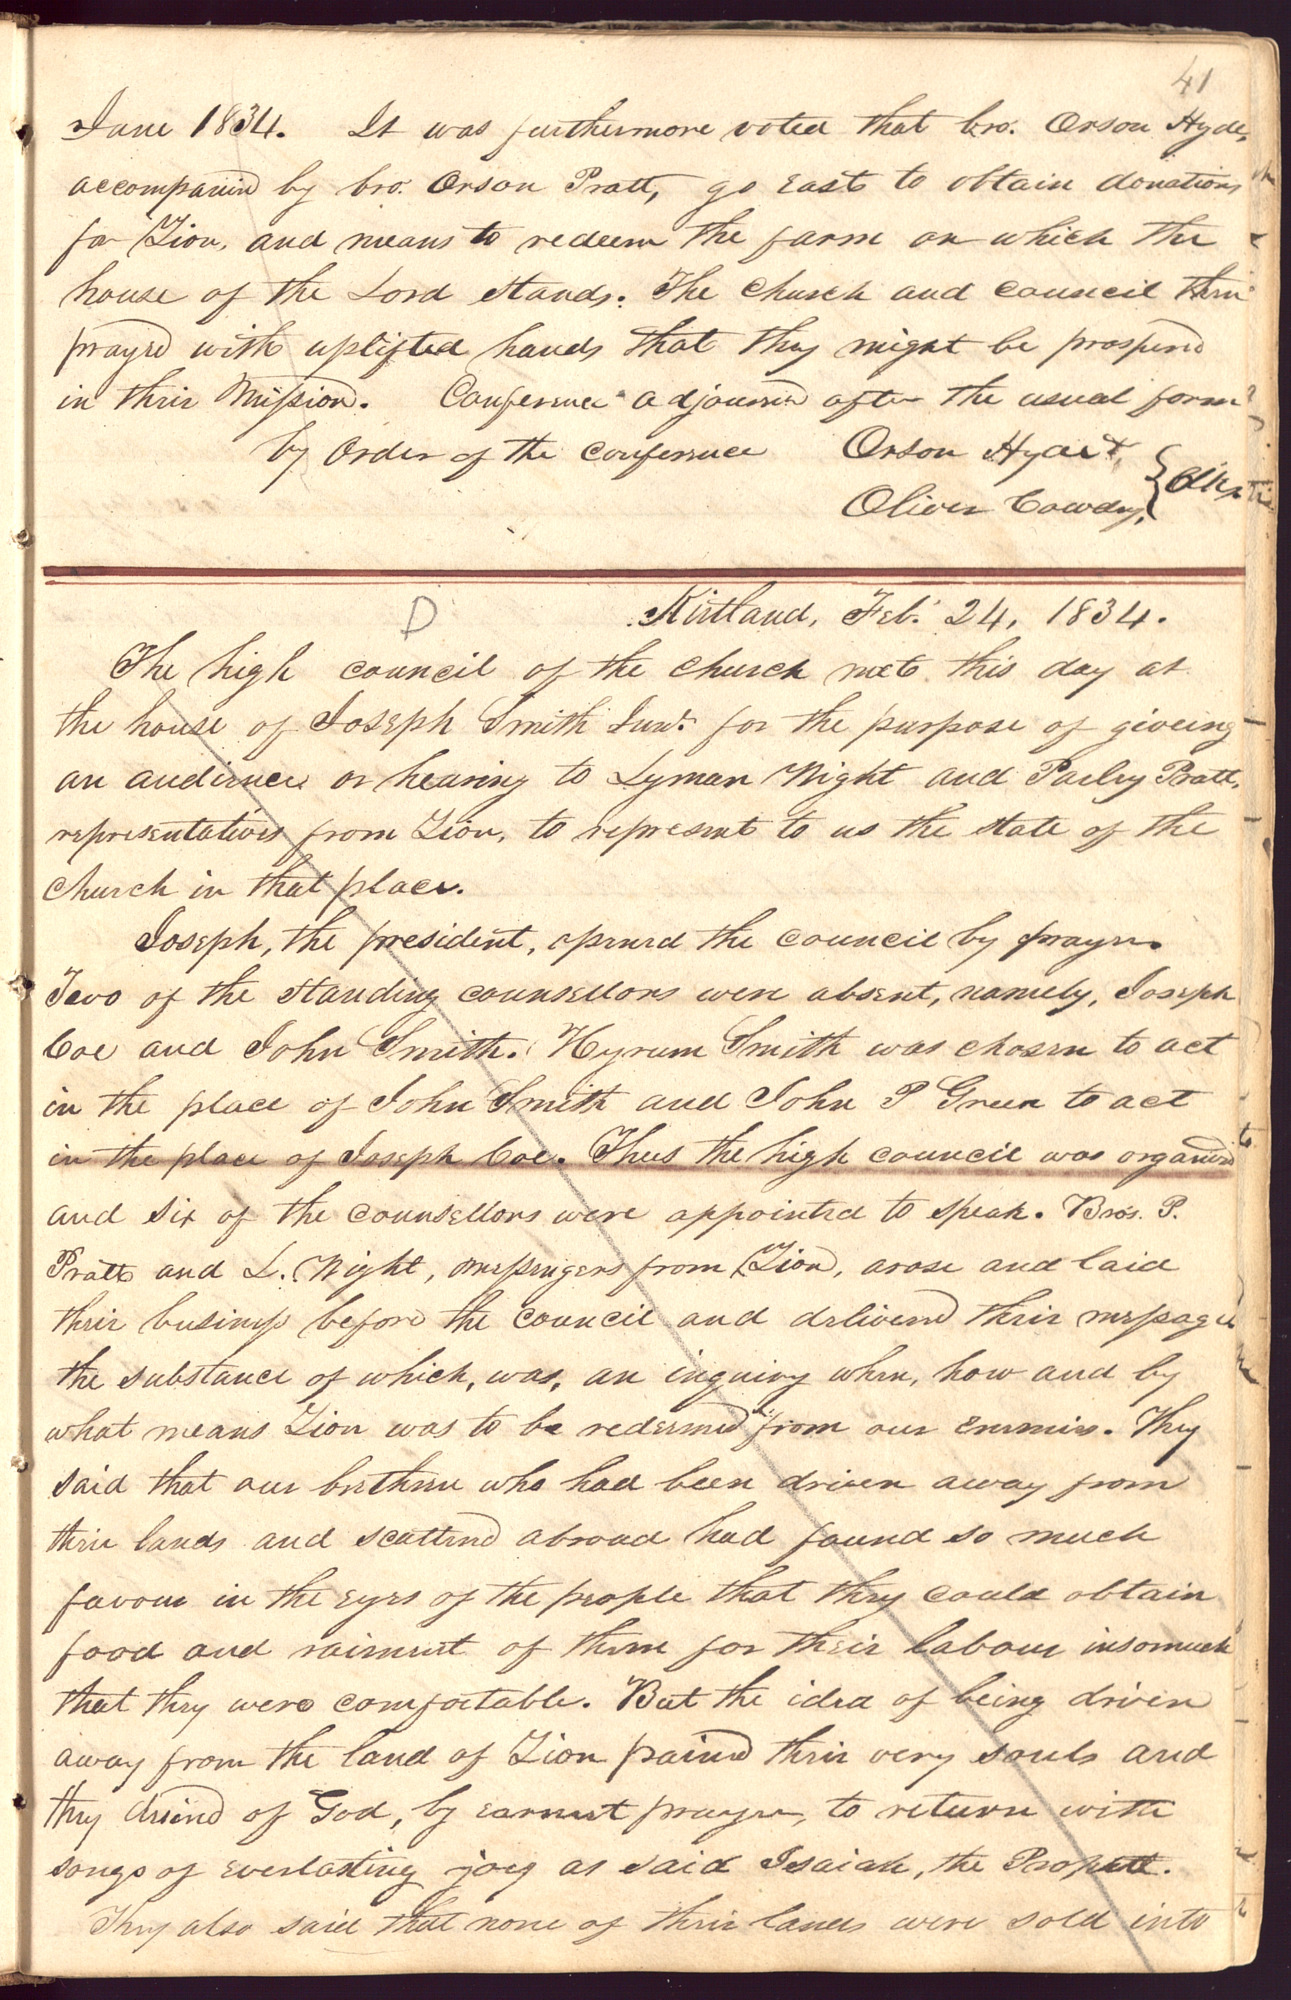 41
June 1834. It was furthermore voted that bro. Orson Hyde,
accompanied by bro. Orson Pratt, go east to obtain donations
for Zion, and means to redeem the farm on which the
house of the Lord stands. The church and council then
prayed with uplifted hands that they might be prospered
in their Mission. Conference adjourned after the usual form
by order of the conference Orson Hyde
Oliver Cowdry, } Clks
Kirtland, Feb. 24, 1834.
D
The high council of the church met this day at
the house of Joseph Smith Junr. for the purpose of giveing
an audience or hearing to Lyman Wight and Parley Pratt,
representatives from Zion, to represent to us the state of the
church in that place.
Joseph, the president, opened the council by prayer.
Two of the standing counsellors were absent, namely, Joseph
Coe and John Smith. Hyrum Smith was chosen to act
in the place of John Smith and John P Green to act
in the place of Joseph Coe. Thus the high council was organized
and six of the counsellors were appointed to speak. Bros. P.
Pratt and L. Wight, messengers from Zion, arose and laid
their business before the council and delivered their message
the substance of which, was, an inquiry when, how and by
what means Zion was to be redeemed from our enemies. They
said that our brethren who had been driven away from
their lands and scattered abroad had found so much
favour in the eyes of the people that they could obtain
food and raiment of them for their labour insomuch
that they were comfortable. But the idea of being driven
away from the land of Zion pained their very souls and
they desired of God, by earnest prayer, to return with
songs of everlasting joy as said Isaiah, the Prophet.
They also said that none of their lands were sold into